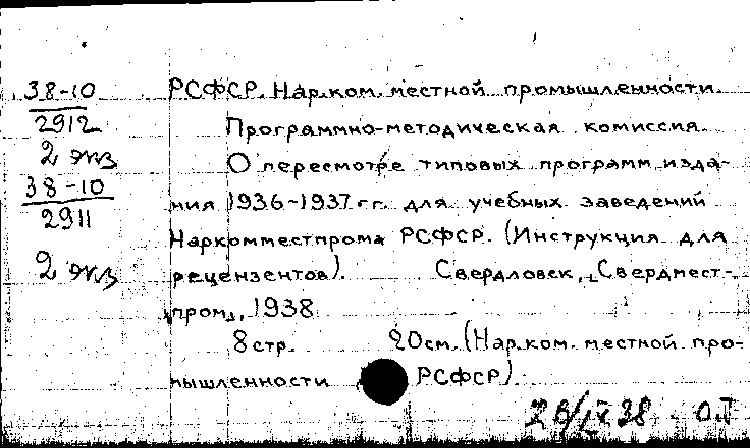 38-10
2912
2 экз
38-10
2911
2 экз
РСФСР. Нар.ком. местной промышленности.
Программно-методическая комиссия.
О пересмотре типовых программ изда-
ния 1936-1937 гг. для учебных заведений
Наркомместпрома РСФСР. (Инструкция для
рецензентов). Свердловск, "Свердмест-
пром", 1938
8 стр. 20 см. (Нар.ком. местной про-
мышленности РСФСР)